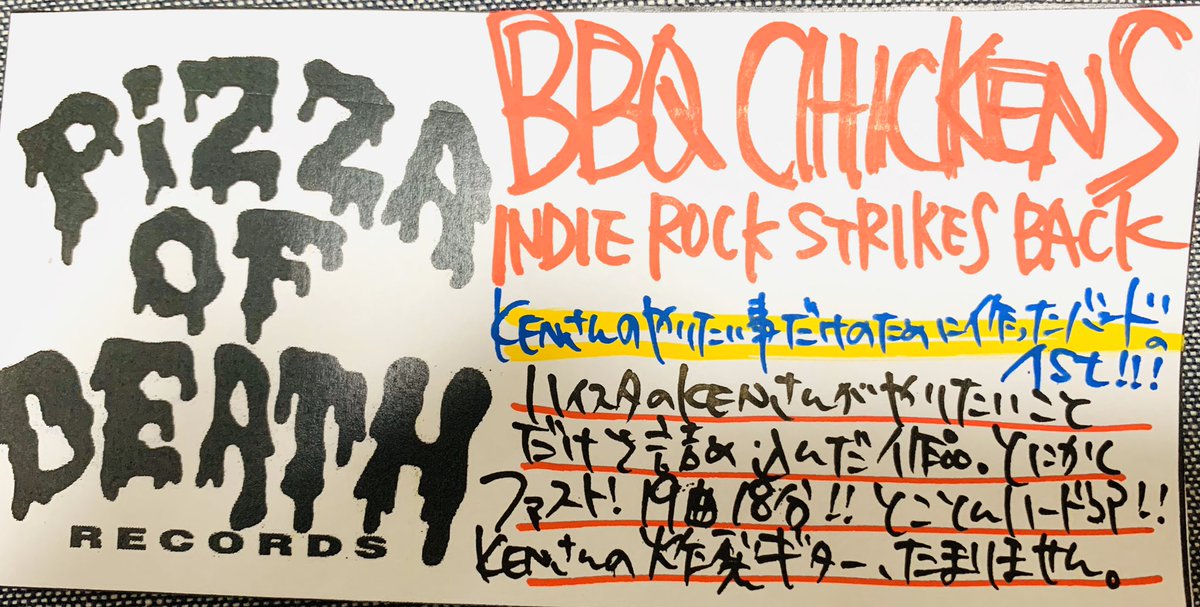 PiZZA
OF
DEATH
RECORDS
BBQ CHICKENS
INDIE ROCK STRIKES BACK
KENさんのやりたい事だけのために作ったバンド。
1St!!!
ハイスタのKENさんがやりたいこと
だけを詰め込んだ作品。とにかく
ファスト！19曲18分!!とことんハードコア!!
KENさんの炸裂ギター、たまりません。